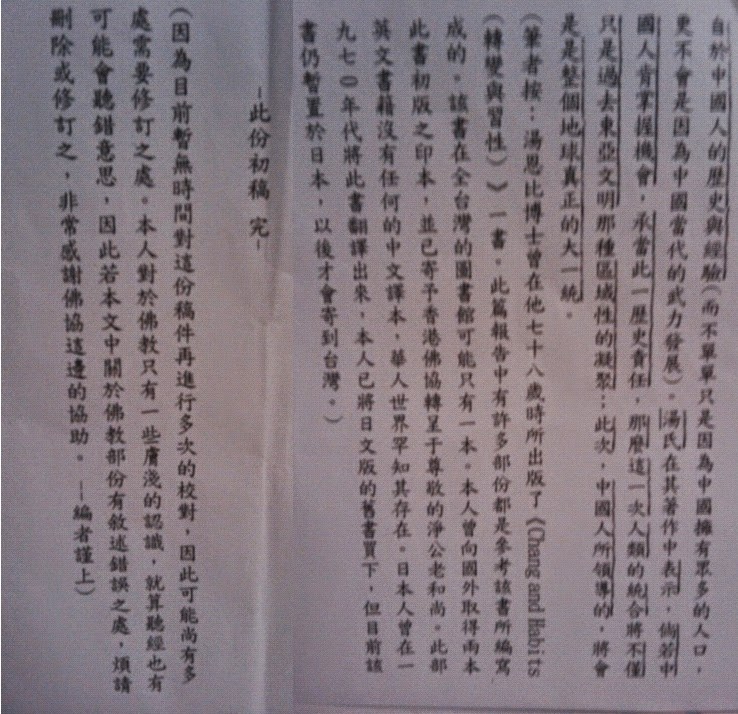 自於中國人的歷史與經驗（而不單單只是因為中國擁有眾多的人口，
更不會是因為中國當代的武力發展）。湯氏在其著作中表示，倘若中
國人肯掌握機會，承當此一歷史責任，那麼這一次人類的統合將不僅
只是過去東亞文明那種區域性的凝聚；此次，中國人所領導的，將會
是是整個地球真正的大一統。
（筆者按：湯恩比博士曾在他七十八歲時所出版了《Chang and Habits
（轉變與習性）》一書。此篇報告中有許多部份都是參考該書所編寫
成的。該書在全台灣的圖書館可能只有一本。本人曾向國外取得兩本
此書初版之印本，並已寄予香港佛協轉呈于尊敬的淨公老和尚。此部
英文書籍沒有任何的中文譯本，華人世界罕知其存在。日本人曾在一
九七０年代將此書翻譯出來，本人已將日文版的舊書買下，但目前該
書仍暫置於日本，以後才會寄到台灣。）
－此份初稿 完－
（因為目前暫無時間對這份稿件再進行多次的校對，因此可能尚有多
處需要修訂之處。本人對於佛教只有一些膚淺的認識，就算聽經也有
可能會聽錯意思，因此若本文中關於佛教部份有敘述錯誤之處，煩請
刪除或修訂之，非常感謝佛協這邊的協助。－編者謹上）